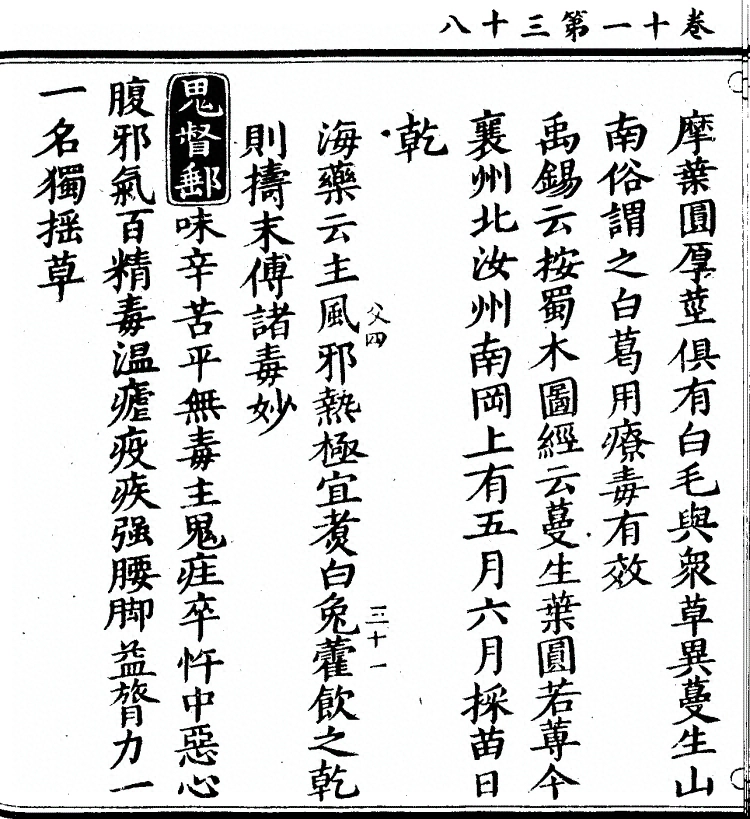 卷十一第三十八
摩葉圓厚莖俱有白毛與衆草異蔓生山
南俗謂之白葛用療毒有效
禹錫云按蜀木圖經云蔓生葉圓若蓴今
襄州北汝州南岡上有五月六月採苗日
乾
父四
三十一
海藥云主風邪熱極宜煑白兔藿飲之乾
則擣末傅諸毒妙
鬼督郵味辛苦平無毒主鬼疰卒忤中惡心
腹邪氣百精毒温瘧疫疾强腰脚益膂力一
一名獨揺草